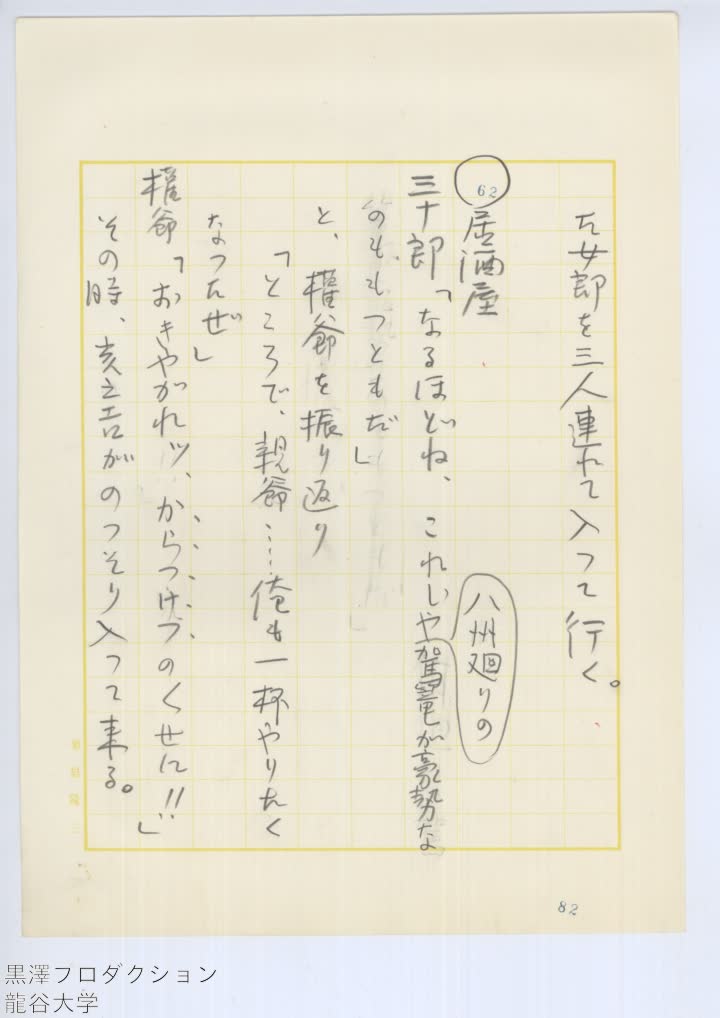 た女郎を三人連れて入って行く。
62
居酒屋
八州廻りの
三十郎「なるほどね、これじゃ駕篭が豪勢な
のも、もっともだ」
と、権爺を振り返り
「ところで、親爺……俺も一杯やりたく
なったぜ」
権爺「おきやがれッ、からっけつのくせに!!」
その時、亥之吉がのっそり入って来る。
82
黒澤プロダクション
龍谷大学